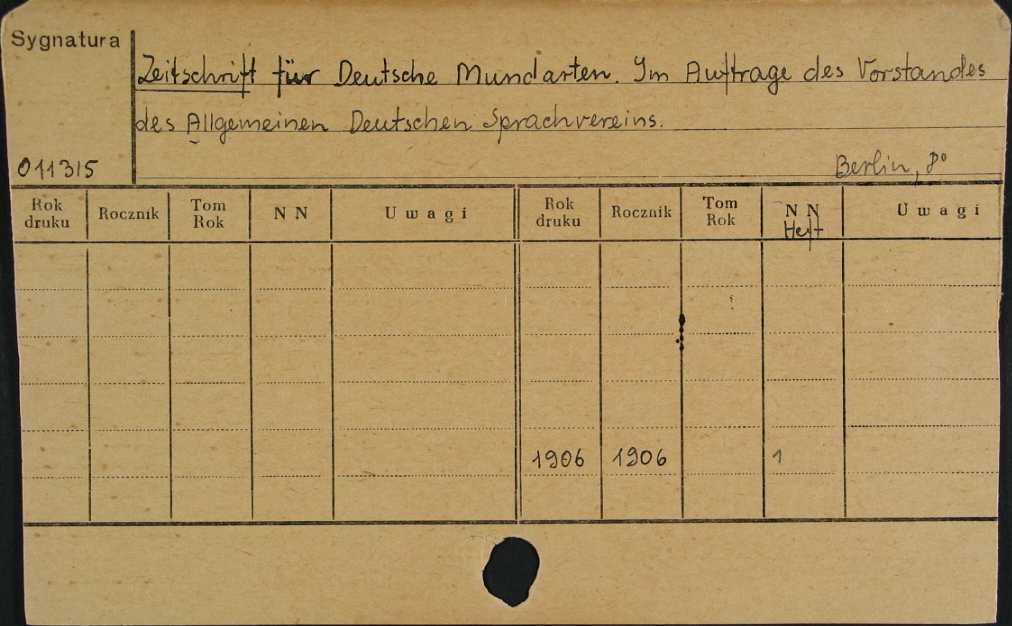 Sygnatura
Zeitschrift für Deutsche Mundarten. Im Auftrage des Vorstandes
des Allgemeinen Deutschen Sprachvereins.
011315
Berlin, 8°
Rok druku Rocznik Tom Rok N N U w a g i Rok druku Rocznik Tom Rok N N Heft U w a g i
1906 1906 1